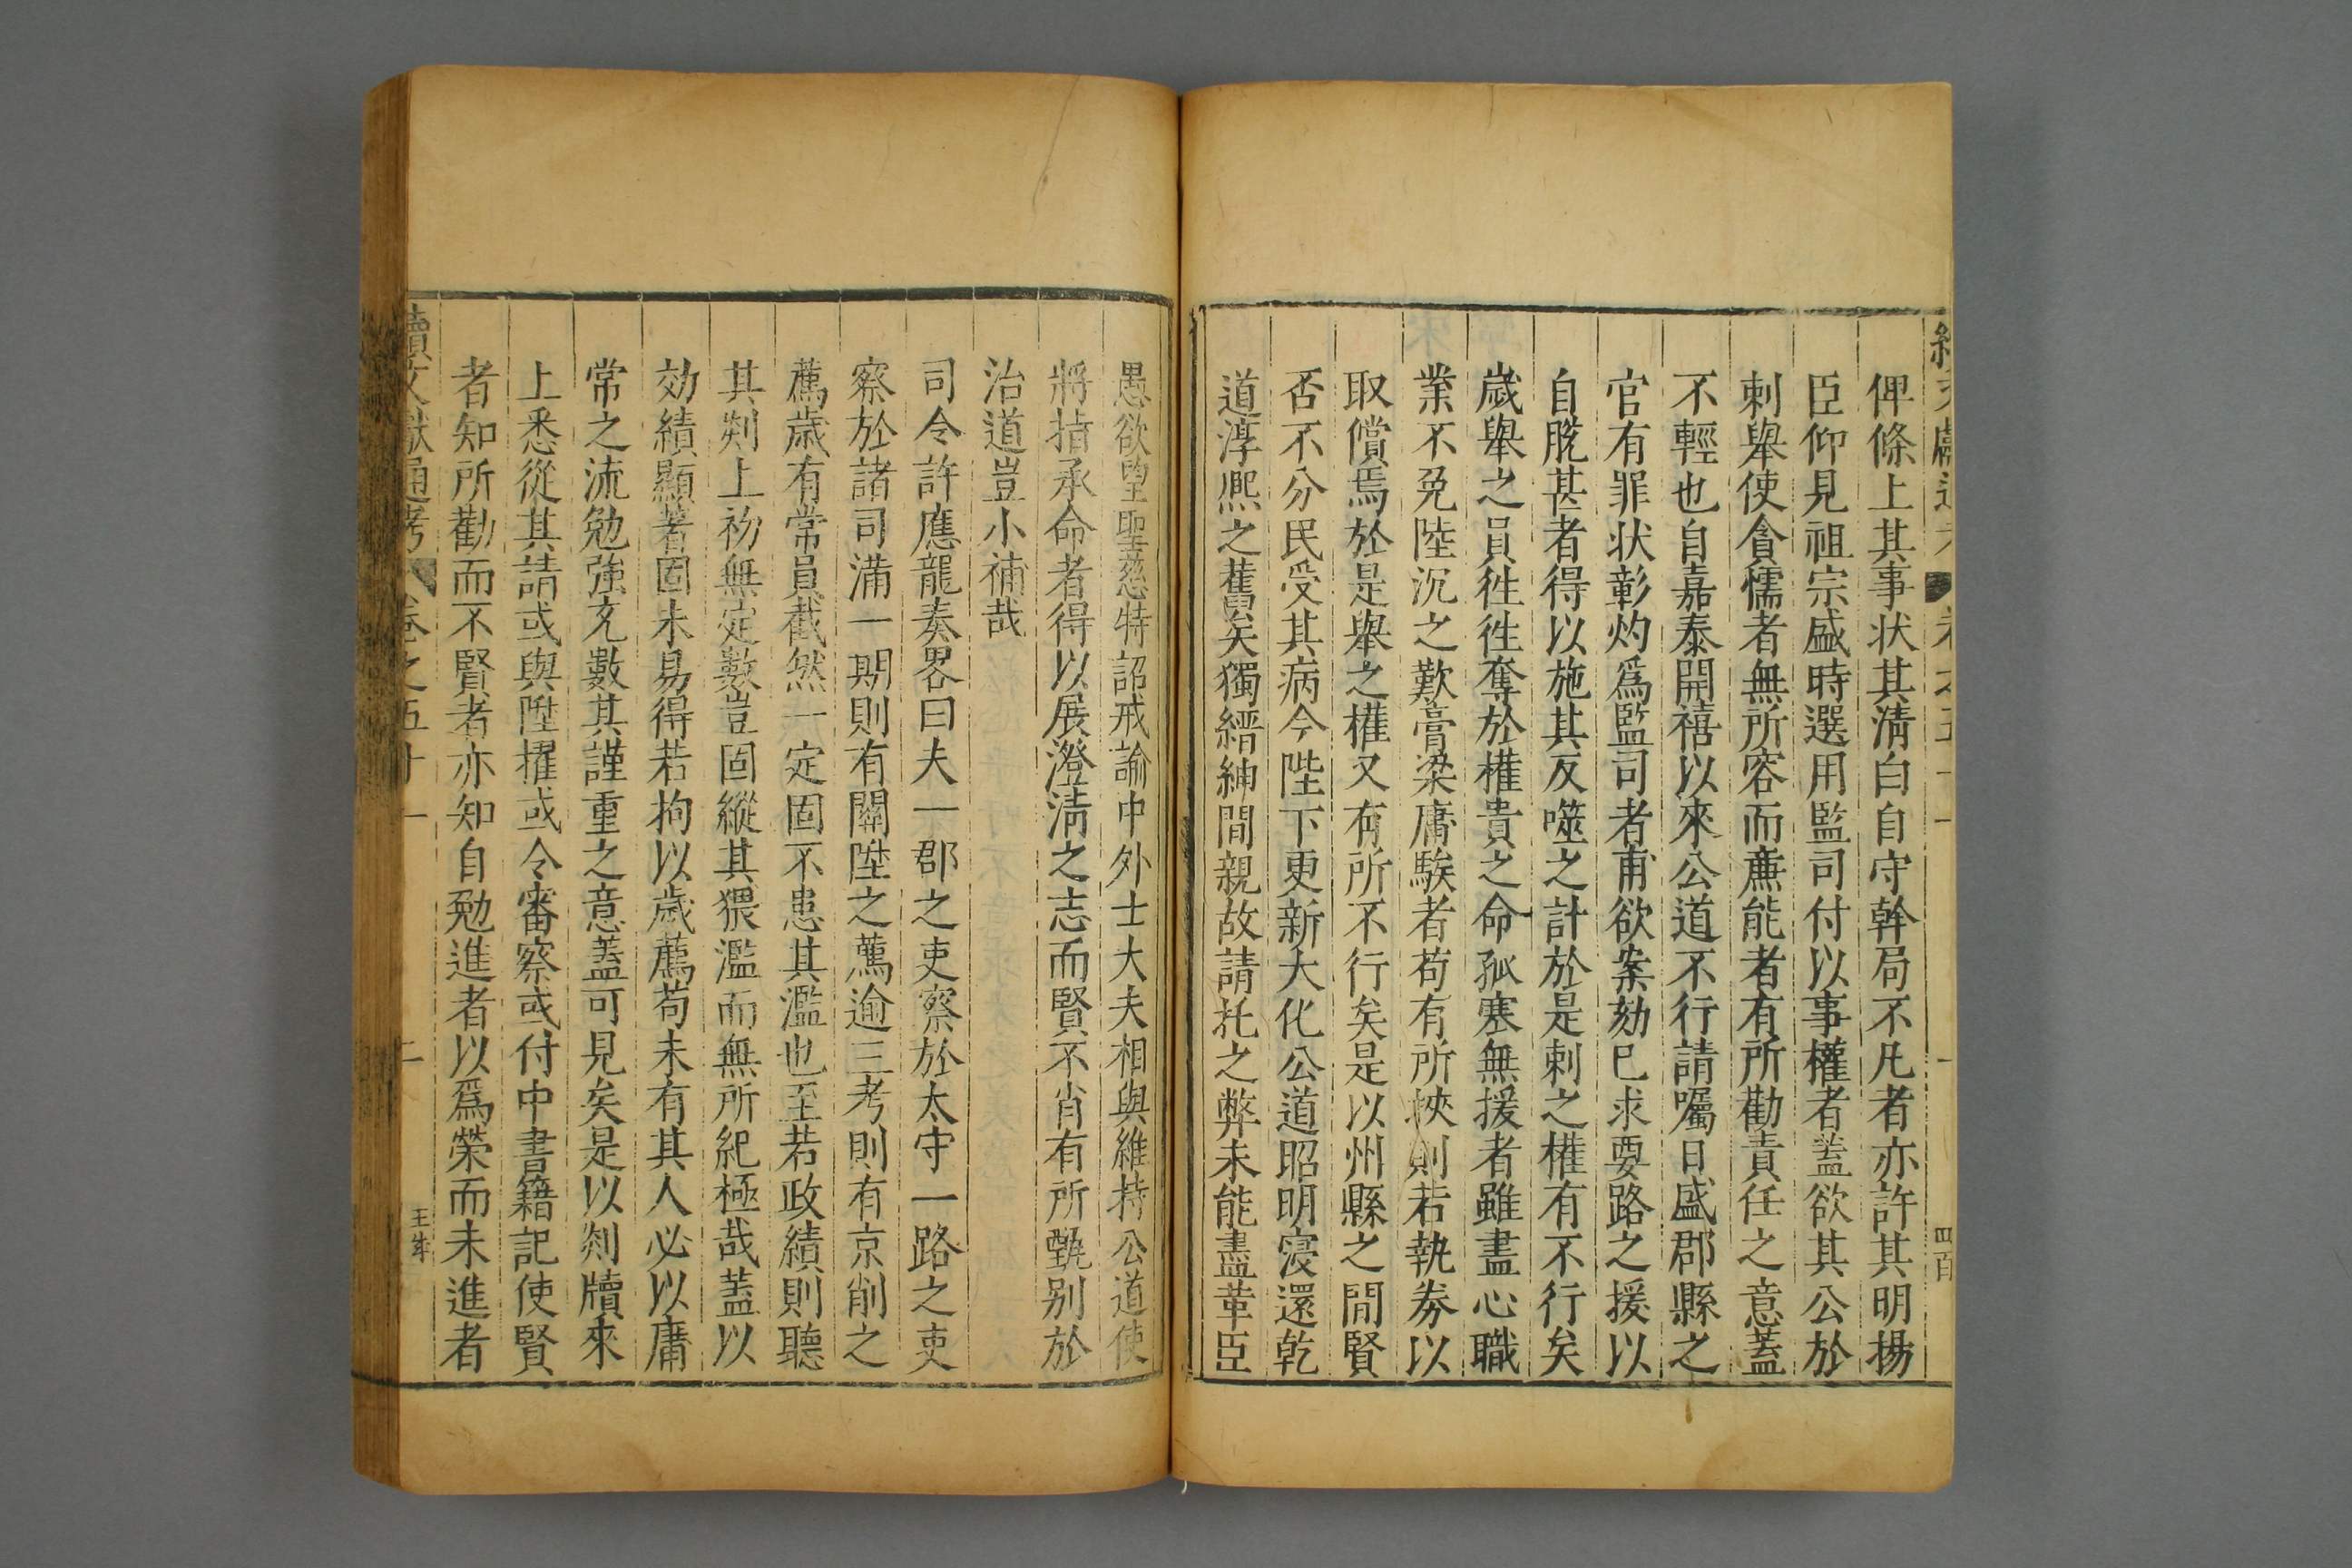 俾條上其事状其清白自守幹局不凡者亦許其明揚
臣仰見祖宗盛時選用監司付以事權者蓋欲其公於
刺舉使貪懦者無所容而亷能者有所勸責任之意蓋
不輕也自嘉泰開禧以來公道不行請囑日盛郡縣之
官有罪状彰灼爲監司者甫欲案劾已求要路之援以
自脱甚者得以施其反噬之計於是刺之權有不行矣
歲舉之員徃徃奪於權貴之命孤寒無援者雖盡心職
業不免陸沉之歎膏梁庸騃者苟有所挾則若執券以
取償焉於是舉之權又有所不行矣是以州縣之間賢
否不分民受其病今陛下更新大化公道昭明寖還乾
道淳熈之舊矣獨縉紳間親故請托之弊未能盡革臣
愚欲望聖慈特詔戒諭中外士大夫相與維持公道使
將指承命者得以展澄清之志而賢不肖有所甄别於
治道豈小補哉
司令許應龍奏畧曰夫一郡之吏察於太守一路之吏
察於諸司滿一期則有關陞之薦逾三考則有京削之
薦歲有常員截然一定固不患其濫也至若政績則聽
其剡上初無定數豈固縱其猥濫而無所紀極哉蓋以
効績顯著固未易得若拘以歲薦苟未有其人必以庸
常之流勉強充數其謹重之意蓋可見矣是以剡牘來
上悉從其請或與陞擢或令審察或付中書籍記使賢
者知所勸而不賢者亦知自勉進者以爲榮而未進者
續文獻通考 卷之五十一 二 王年